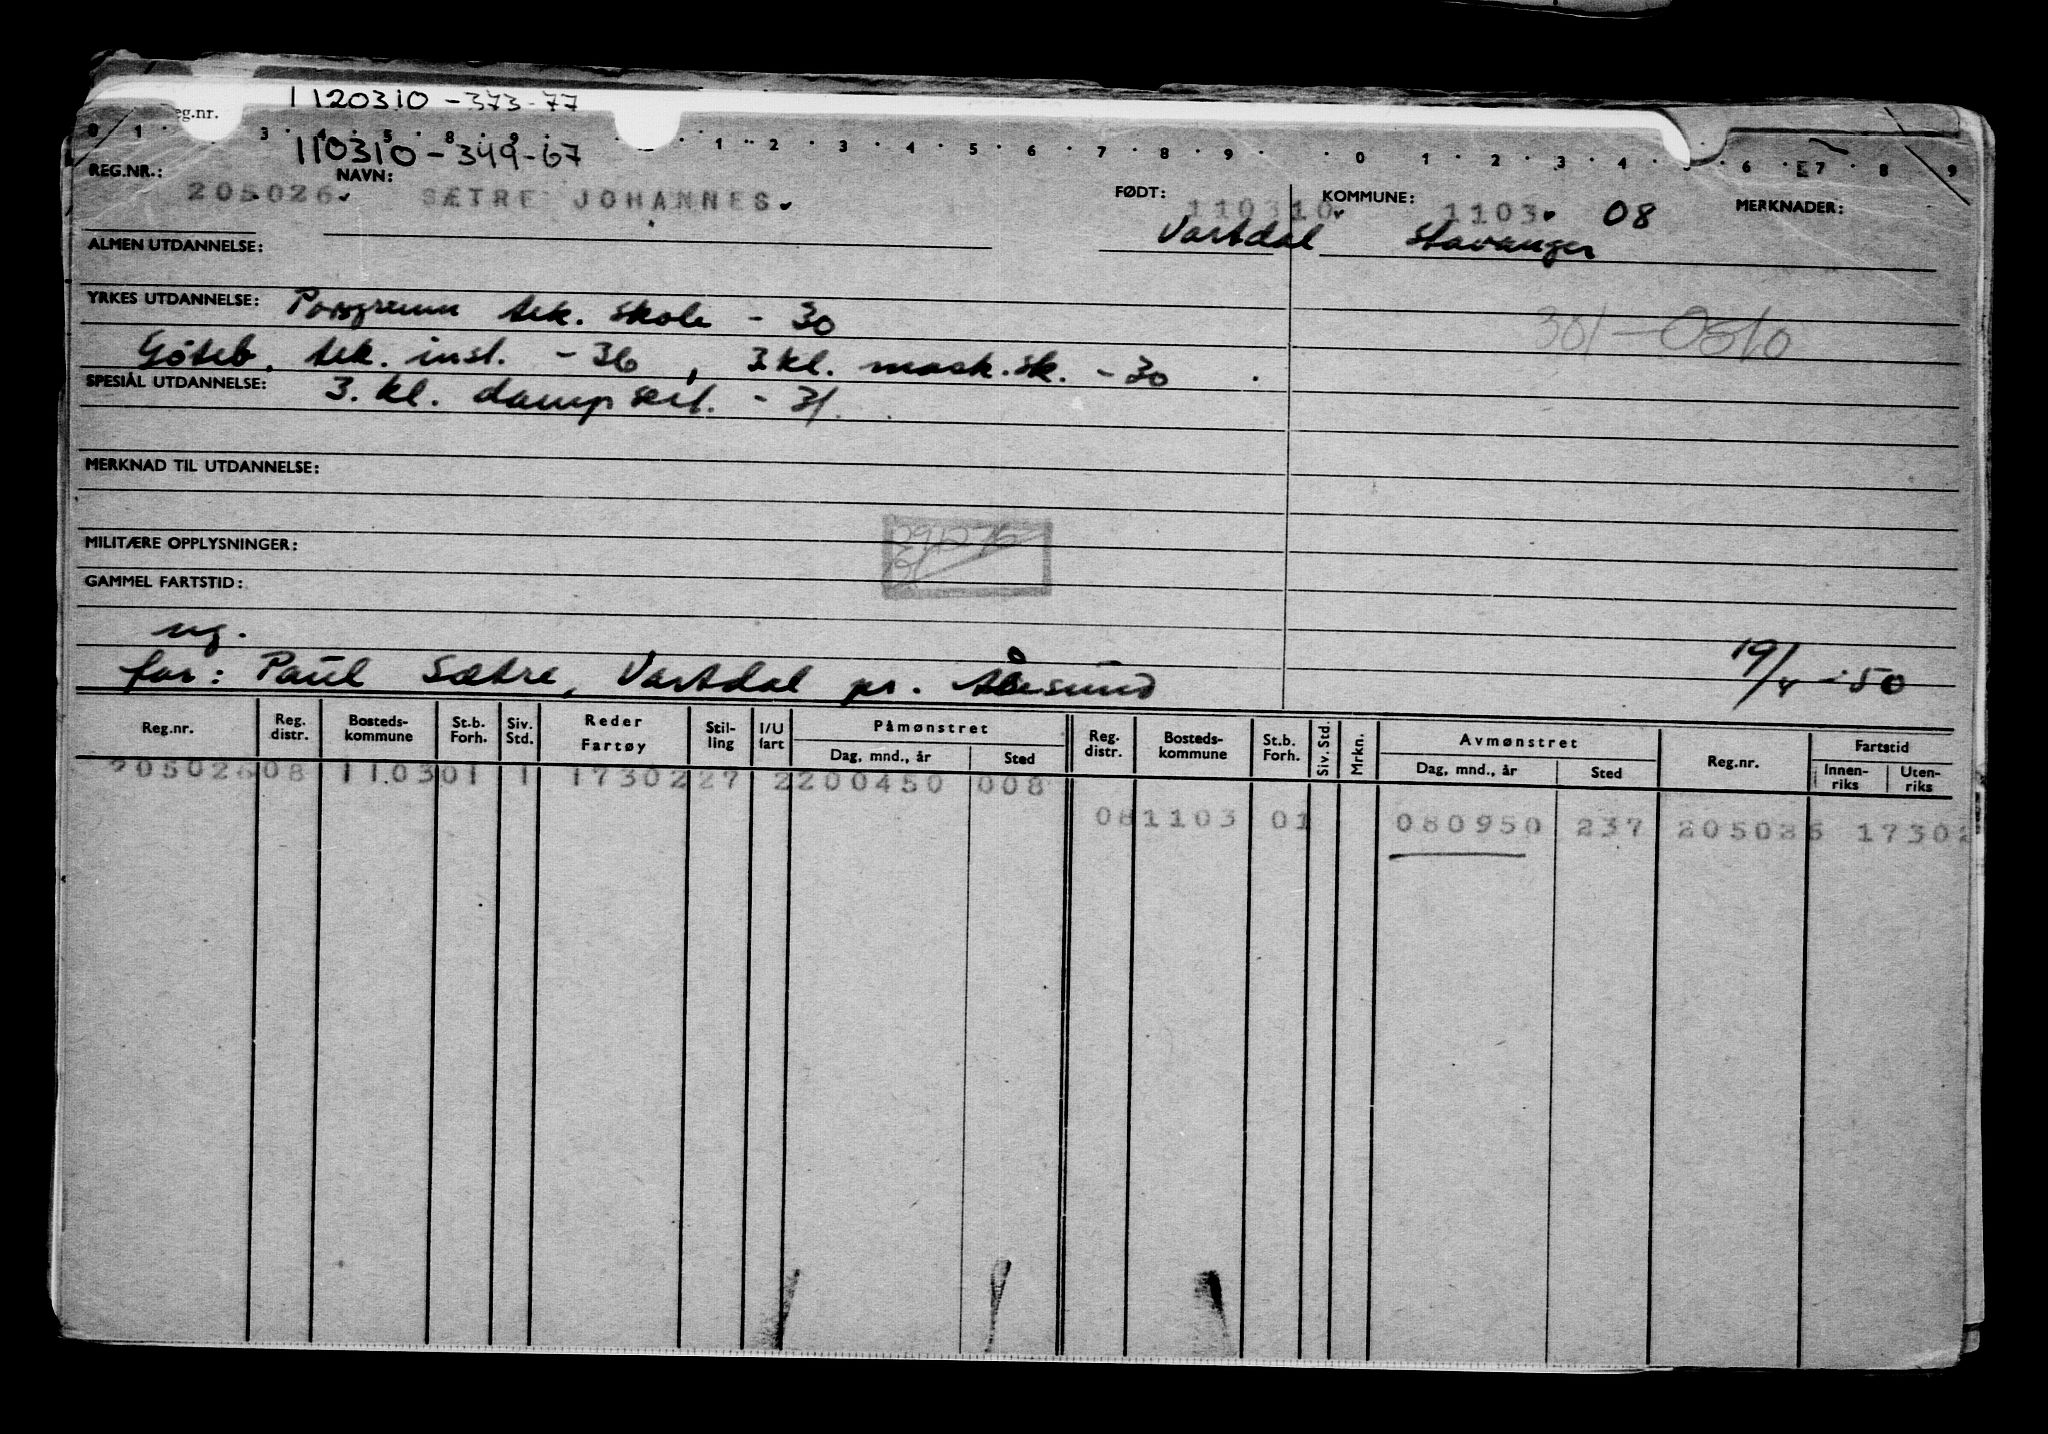 1120310 - 373-77
eg.nr.
0 1 3 4 5 8 9 1 2 3 4 5 6 7 8 9 0 1 2 3 4 6 7 8 9
110310 - 349-67
REG.NR.: NAVN: FØDT: KOMMUNE: MERKNADER:
205026 SÆTRE JOHANNES 110310 1103 08
Vartdal Stavanger
ALMEN UTDANNELSE:
YRKES UTDANNELSE: Porsgrunn tek. skole - 30
301 - Oslo
Göteb. tek. inst. - 36, 3 kl. mask. sk. - 30
SPESIÁL UTDANNELSE: 3. kl. damp sert. - 31.
MERKNAD TIL UTDANNELSE:
MILITÆRE OPPLYSNINGER:
GAMMEL FARTSTID:
ug.
far: Paul Sætre, Vartdal pr. Ålesund 19/4 - 50
Reg.nr. Reg. distr. Bosteds- kommune St.b. Forh. Siv. Std. Reder Fartøy Stil- ling I/U fart Påmønstret Reg. distr. Bosteds- kommune St.b. Forh. Siv. Std. Mrkn. Avmønstret Reg.nr. Fartstid
Dag, mnd., år Sted Dag, mnd., år Sted Innen- riks Uten- riks
205026 08 1103 01 1 17302 27 2 200450 008
08 1103 01 080950 237 205026 17302